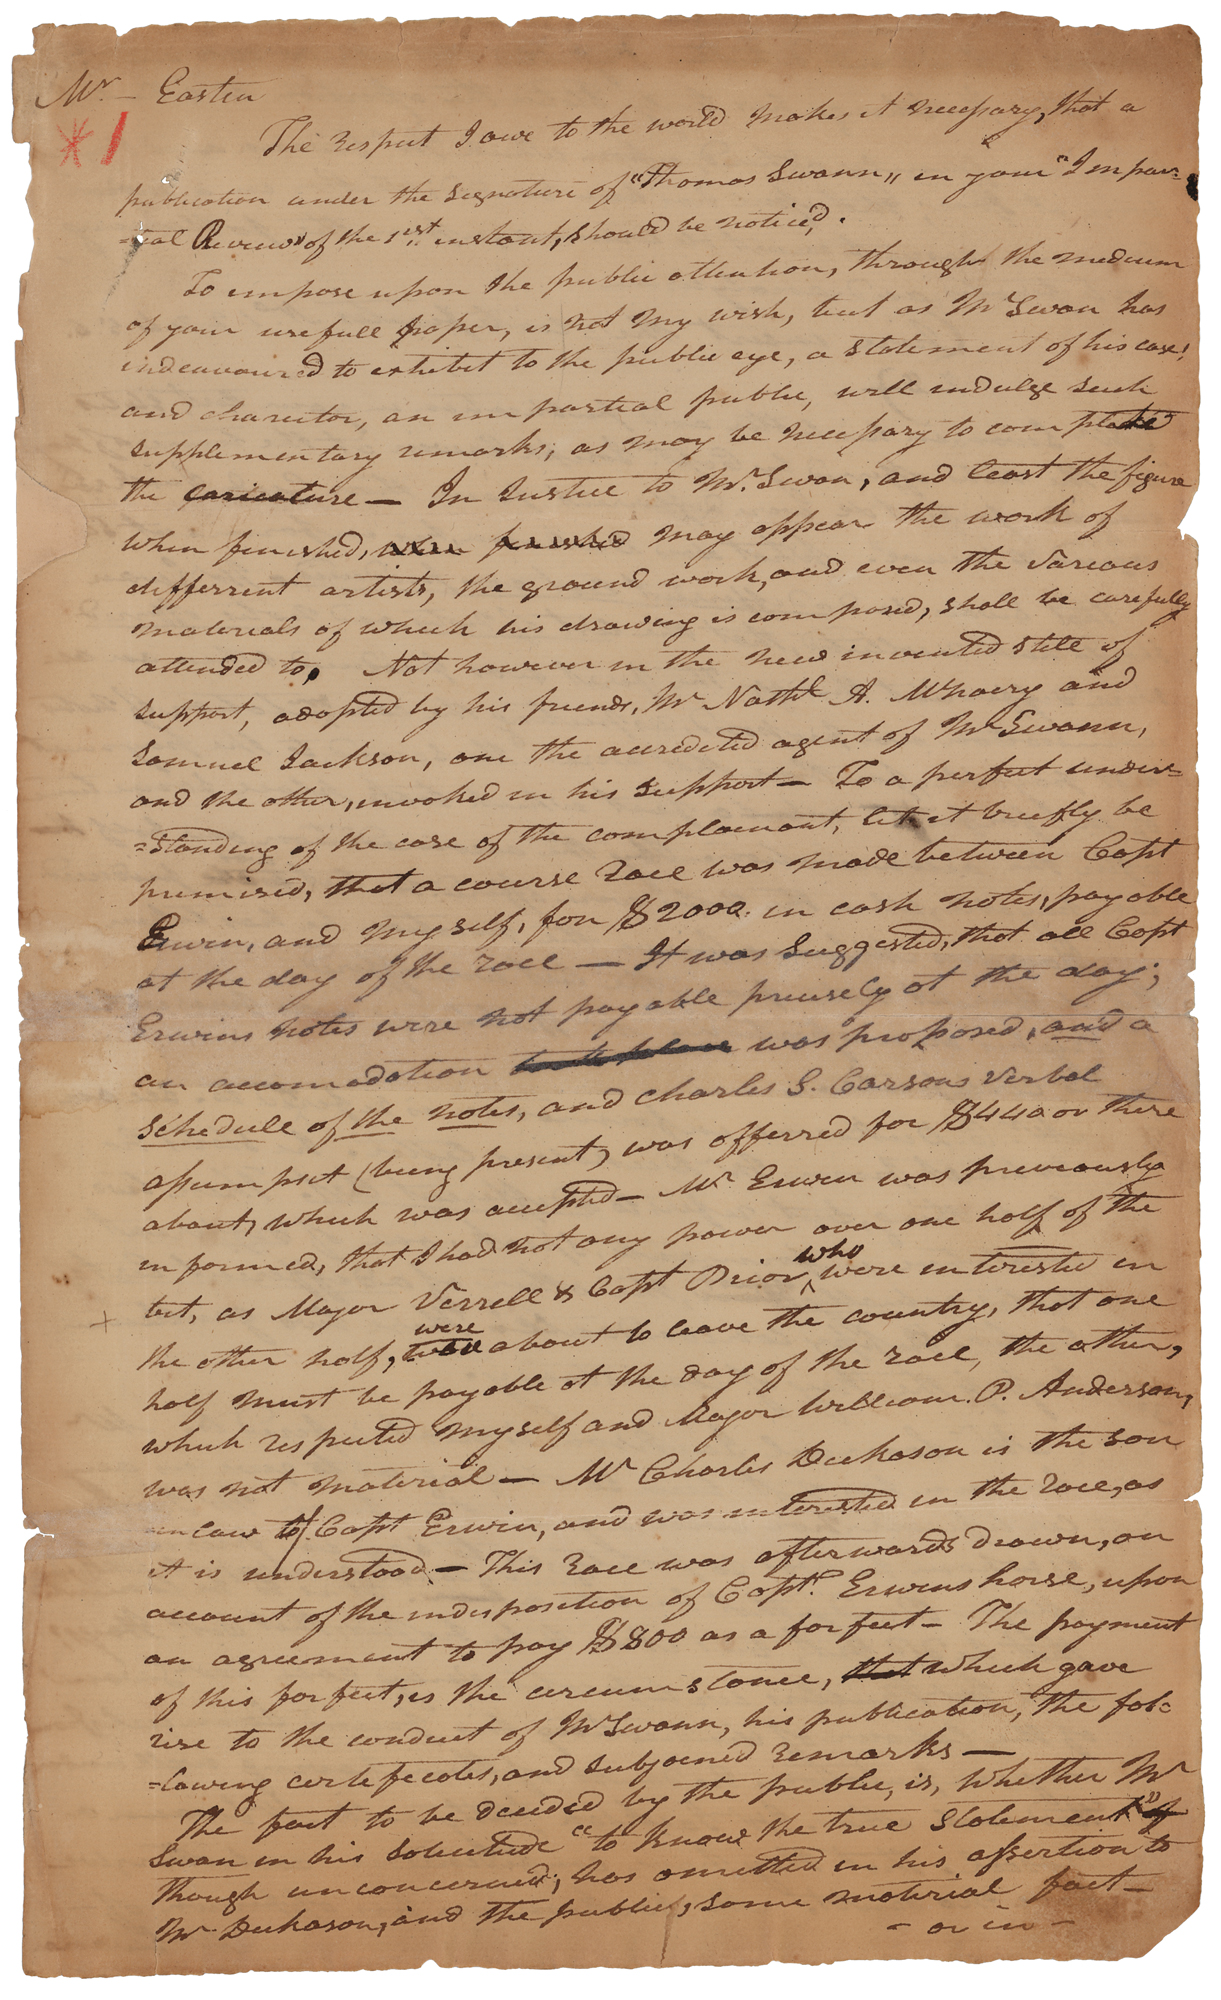 Mr. — Easten
* 1
The respect I owe to the world makes it necessary, that a
publication under the signature of "Thomas Swann" in your "Impar=
=tial Review" of the 1st instant, should be noticed.
To impose upon the public attention, through the medium
of your usefull paper, is not my wish, but as Mr Swan has
indeavoured to exhibit to the public eye, a statement of his case,
and charector, an impartial public, will indulge such
supplementary remarks, as may be necessary to complete
the caricature — In Justice to Mr. Swan, and least the figure
when finished, when finished may appear the work of
different artists, the ground work, and even the various
materials of which his drawing is composed, shall be carefully
attended to. Not however in the new invented stile of
support, adopted by his friends, Mr Nathl A. McNairy and
Samuel Jackson, one the accredited agent of Mr Swann,
and the other, invoked in his support — To a perfect under=
=standing of the case of the complainant, let it briefly be
premised, that a course race was made between Capt
Erwin, and myself, for $2000. in cash notes, payable
at the day of the race — It was suggested, that all Capt
Erwins notes were not payable precisely at the day;
an accomodation was proposed, and a
schedule of the notes, and Charles S. Carsons verbal
assumpsit (being present) was offerred for $440 or there
about, which was accepted — Mr Erwin was previously
informed, that I had not any power over one half of the
bet, as Major Verrell & Capt Prior, who were interested in
the other half, were about to leave the country, that one
half must be payable at the day of the race, the other,
which respected myself and Major William. P. Anderson,
was not material — Mr Charles Dickason is the son
in law to Capt Erwin, and was interested in the race, as
it is understood — This race was afterwards drawn, on
account of the indisposition of Capt. Erwins horse, upon
an agreement to pay $800 as a forfeet — The payment
of this forfeet, is the circumstance, that which gave
rise to the conduct of Mr Swann, his publication, the fol=
=lowing certefecates, and subjoined remarks —
The fact to be decided by the public, is, whether Mr
Swan in his solicitude "to know the true statement" of
though unconcerned, has omitted in his assertion to
Mr Dickason, and the public, some material fact —
- or in -